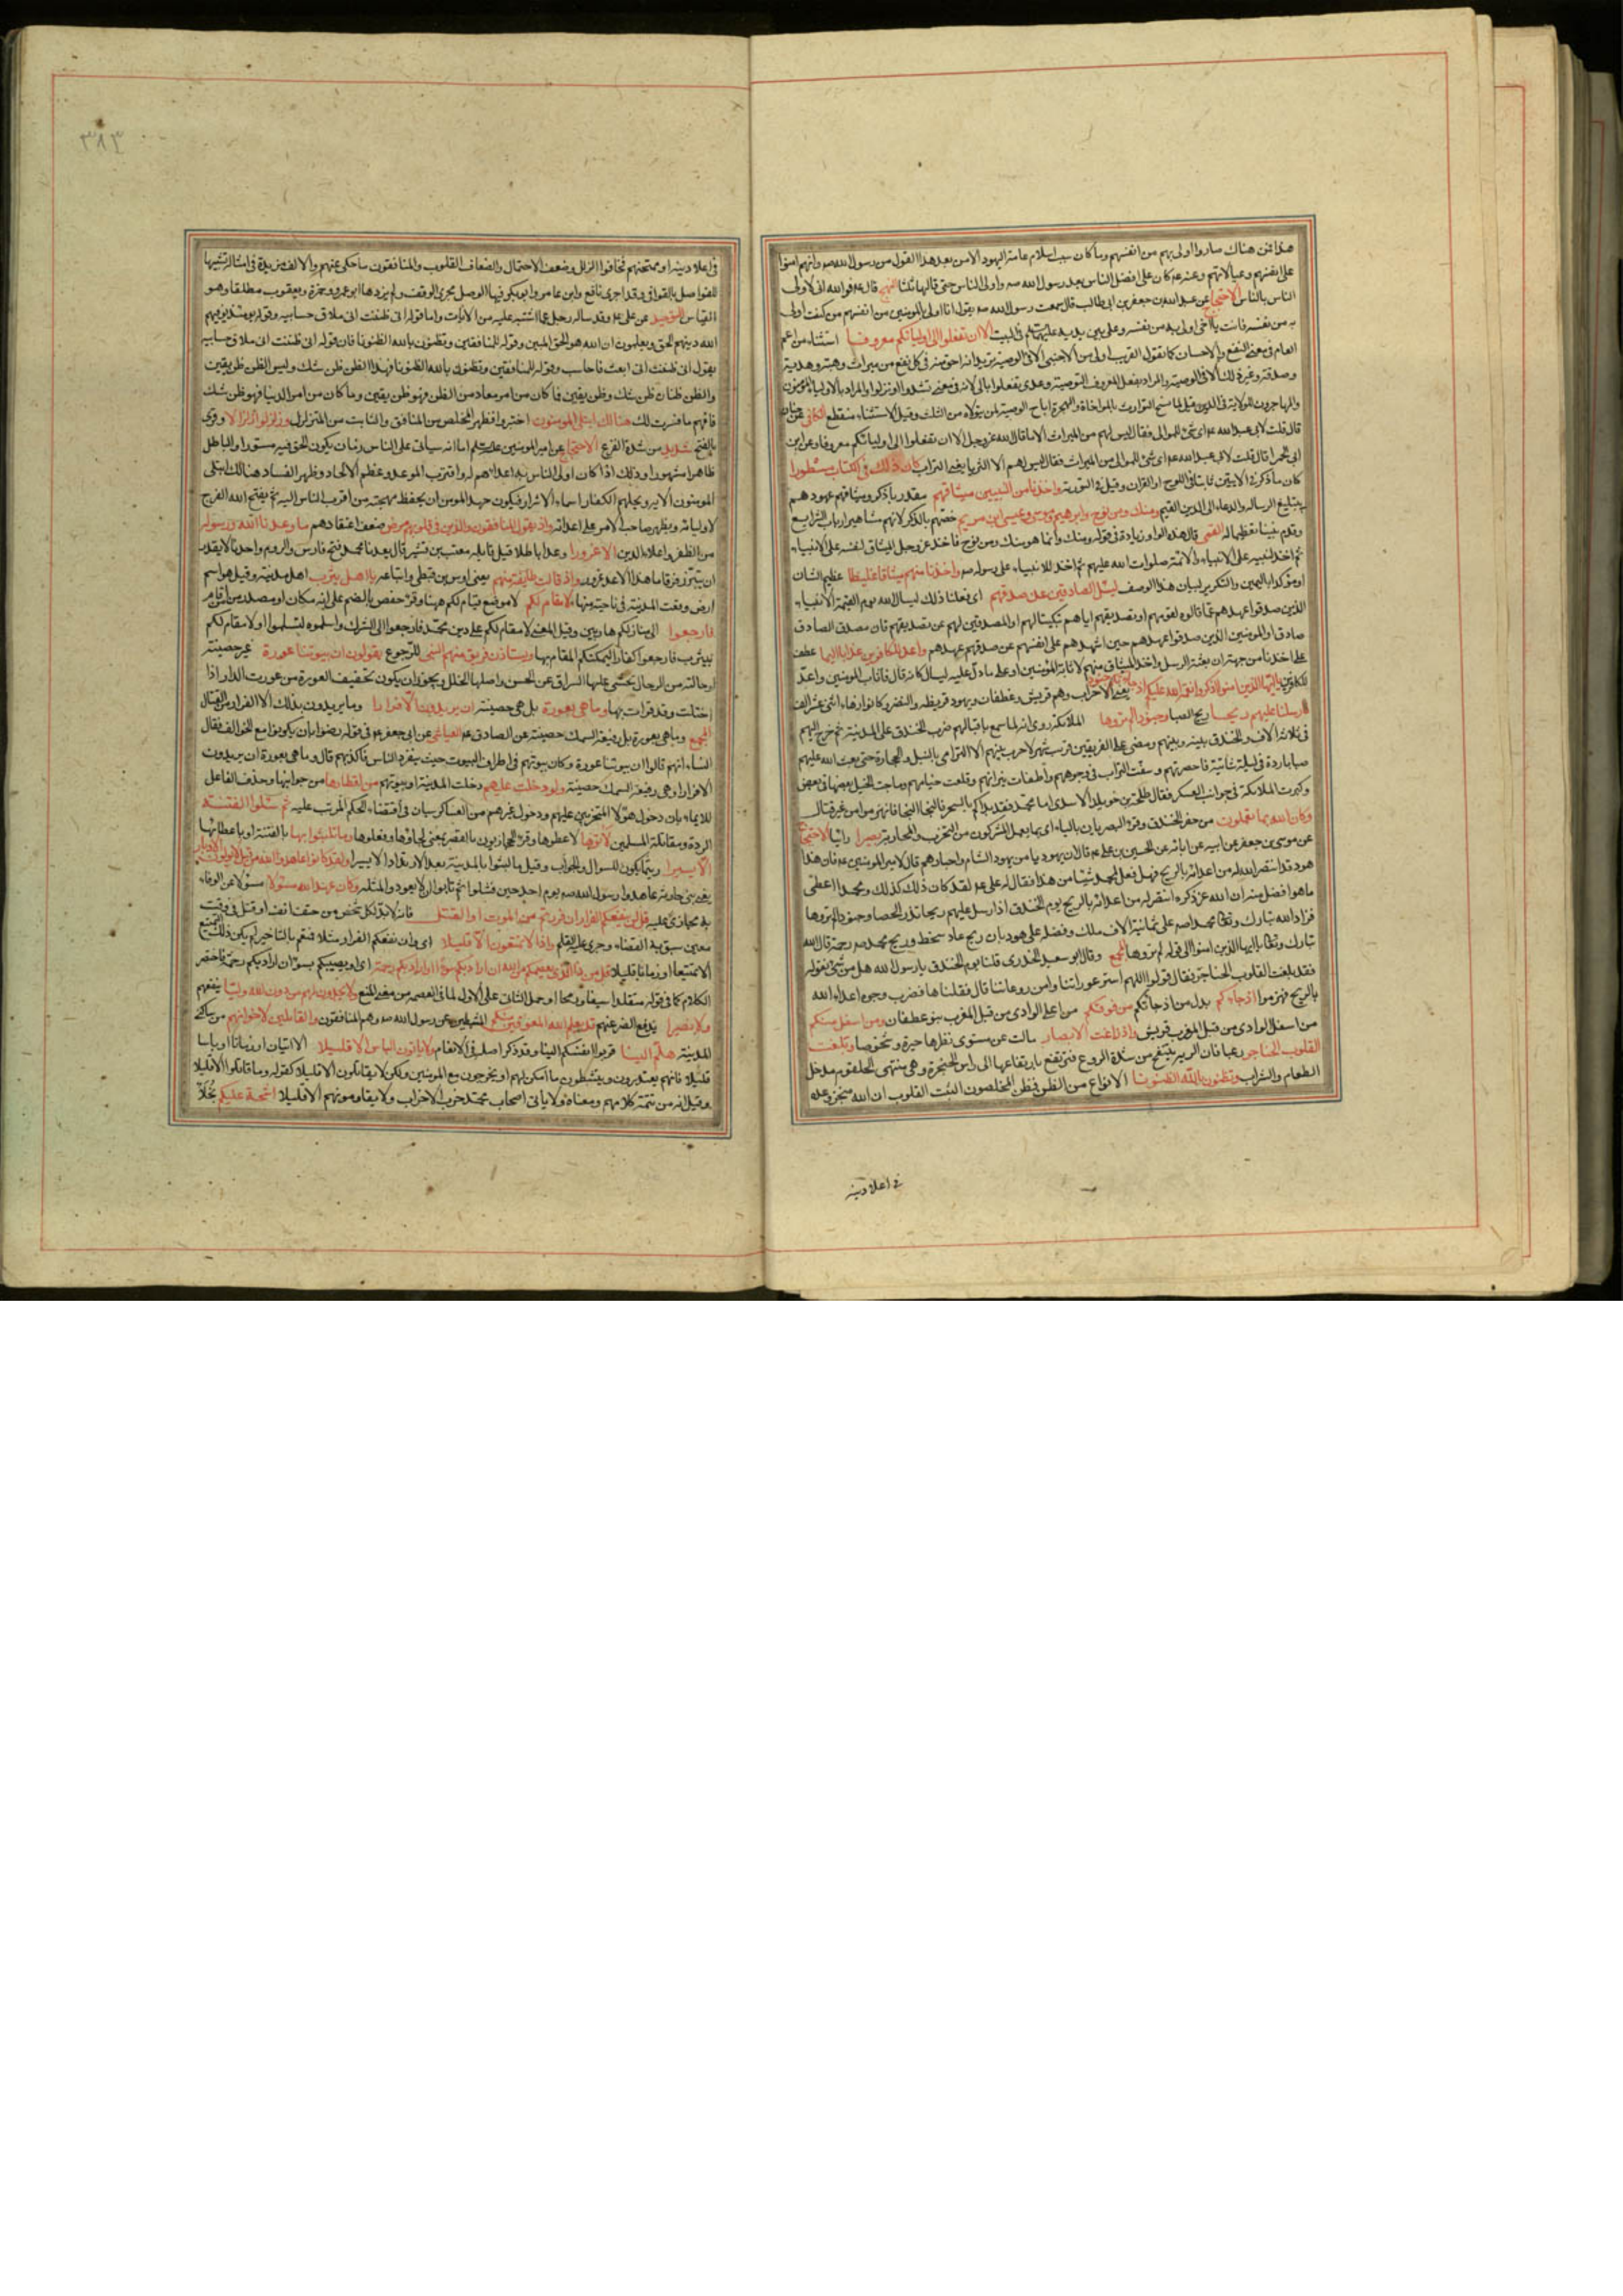 هذا فمن هناك صاروا اولى بهم من انفسهم وما كان سبب اسلام عامة اليهود الا من بعد هذا القول من رسول الله صم وانهم امنوا
على انفسهم وعيالاتهم وعنه عم كان على افضل الناس بعد رسول الله صم واولى الناس حتى قالها ثلثا النهج قال عم فوالله انى لاولى
الناس بالناس الاحتجاج عن عبد الله بن جعفر بن ابى طالب قال سمعت رسول الله صم يقول انا اولى بالمومنين من انفسهم من كنت اولى
به من نفسه فانت يا اخى اولى به من نفسه وعلى بين يديه عليهما السلم فى البيت الا ان تفعلوا الى اوليائكم معروفا استثناء من اعم
العام فى معنى النفع والاحسان كما تقول القريب اولى من الاجنبى الا فى الوصية تريد انه احق منه فى كل نفع من ميراث وهبة وهدية
وصدقة وغير ذلك الا فى الوصية والمراد بفعل المعروف التوصية وعدى يفعلوا بالى لانه فى معنى تسدوا او تزلوا والمراد بالاولياء المؤمنون
والمهاجرون للولاية فى الدين قيل لما نسخ التوارث بالمواخاة والهجرة اباح الوصية لمن يتولاه من الثلث وقيل الاستثناء منقطع الكافى عن حنان
قال قلت لابى عبد الله عم اى شئ للموالى فقال ليس لهم من الميراث الا ما قال الله عز وجل الا ان تفعلوا الى اوليائكم معروفا وعن ابن
ابى الحمراء قال قلت لابى عبد الله عم اى شئ للموالى من الميراث فقال ليس لهم الا الثرباء يعنى التراب كان ذلك فى الكتاب مسطورا
كان ما ذكر فى الايتين ثابتا فى اللوح او القران وقيل فى التورية واخذنا من النبيين ميثاقهم مقدر باذكر وميثاقهم عهودهم
بتبليغ الرسالة والدعاء الى الدين القيم ومنك ومن نوح وابرهيم وموسى وعيسى ابن مريم خصهم بالذكر لانهم مشاهير ارباب الشرايع
وقدم نبينا تعظيما له القمى قال هذه الواو زيادة فى قوله ومنك وانما هو منك ومن نوح فاخذ عز وجل الميثاق لنفسه على الانبياء
ثم اخذ لنبيه على الانبياء والائمة صلوات الله عليهم ثم اخذ للانبياء على رسوله صم واخذنا منهم ميثاقا غليظا عظيم الشان
او موكدا باليمين والتكرير لبيان هذا الوصف ليسئل الصادقين عن صدقهم اى فعلنا ذلك ليسال الله يوم القيمة الانبياء
الذين صدقوا عهدهم عما قالوه لقومهم او تصديقهم اياهم تبكيتا لهم او المصدقين لهم عن تصديقهم فان مصدق الصادق
صادق او المومنين الذين صدقوا عهدهم حين اشهدهم على انفسهم عن صدقهم عهدهم واعد للكافرين عذابا اليما عطف
على اخذنا من جهة ان بعثة الرسل واخذ الميثاق منهم لاثابة المؤمنين او على ما دل عليه ليسال كانه قال فاثاب المومنين واعد
للكافرين يا ايها الذين امنوا اذكروا نعمة الله عليكم اذ جاءتكم جنود يعنى الاحزاب وهم قريش وغطفان ويهود قريظه والنضير وكانوا زهاء اثنى عشر الف
فارسلنا عليهم ريحا ريح الصبا وجنودا لم تروها الملائكة روى انه لما سمع باقبالهم ضرب الخندق على المدينة ثم خرج اليهم
فى ثلاثة الاف والخندق بينه وبينهم ومضى على الفريقين قريب شهر لا حرب بينهم الا الترامى بالنبل والحجارة حتى بعث الله عليهم
صبا باردة فى ليلة شاتية فاحصرتهم وسفت التراب فى وجوههم واطفات نيرانهم وقلعت خيامهم وماجت الخيل بعضها فى بعض
وكبرت الملائكة فى جوانب العسكر فقال طلحة بن خويلد الاسدى اما محمد فقد بداكم بالسحر فالنجا النجا فانهزموا من غير قتال
وكان الله بما تعملون من حفر الخندق وقرء البصريان بالياء اى بما يعمل المشركون من التحزب والمحاربة بصيرا رائيا الاحتجاج
عن موسى بن جعفر عن ابيه عن ابائه عن الحسين بن على عم قال ان يهوديا من يهود الشام واحبارهم قال لامير المومنين عم فان هذا
هود قد انتصر الله له من اعدائه بالريح فهل فعل لمحمد شيئا من هذا فقال له على عم لقد كان ذلك كذلك ومحمد اعطى
ما هو افضل منه ان الله عز ذكره انتصر له من اعدائه بالريح يوم الخندق اذ ارسل عليهم ريحا تذر الحصا وجنودا لم تروها
فزاد الله تبارك وتعالى محمدا صم على ثمانية الاف ملك وفضله على هود بان ريح عاد سخط وريح محمد صم رحمة قال الله
تبارك وتعالى يا ايها الذين امنوا الى قوله لم تروها المجمع وقال ابو سعيد الخدرى قلنا يوم الخندق يا رسول الله هل من شئ نقوله
فقد بلغت القلوب الحناجر فقال قولوا اللهم استر عوراتنا وامن روعاتنا قال فقلناها فضرب وجوه اعداء الله
بالريح فهزموا اذ جاؤكم بدل من اذ جاءتكم من فوقكم من اعلى الوادى من قبل المغرب بنو غطفان ومن اسفل منكم
من اسفل الوادى من قبل المغرب قريش واذ زاغت الابصار مالت عن مستوى نظرها حيرة وشخوصا وبلغت
القلوب الحناجر رعبا فان الريه ينتفخ من شدة الروع فترتفع بارتفاعها الى راس الحنجرة وهى منتهى الحلقوم مدخل
الطعام والشراب وتظنون بالله الظنونا الانواع من الظن فظن المخلصون الثبت القلوب ان الله منجز وعده
فى اعلاء دينه
٣٨٣
فى اعلاء دينه او ممتحنهم فخافوا الزلل وضعف الاحتمال والضعاف القلوب والمنافقون ما حكى عنهم والالف مزيدة فى امثاله تشبيها
للفواصل بالقوافى وقد اجرى نافع وابن عامر وابو بكر فيها الوصل مجرى الوقف ولم يزدها ابو عمرو وحمزة ويعقوب مطلقا وهو
القياس التوحيد عن على عم وقد ساله رجل عما اشتبه عليه من الايات واما قوله انى ظننت انى ملاق حسابيه وقوله يومئذ يوفيهم
الله دينهم الحق ويعلمون ان الله هو الحق المبين وقوله للمنافقين وتظنون بالله الظنونا فان قوله انى ظننت انى ملاق حسابيه
يقول انى ظننت انى ابعث فاحاسب وقوله للمنافقين وتظنون بالله الظنونا فهذا الظن ظن شك وليس الظن ظن يقين
والظن ظنان ظن شك وظن يقين فما كان من امر معاد من الظن فهو ظن يقين وما كان من امر الدنيا فهو ظن شك
فافهم ما فسرت لك هنالك ابتلى المومنون اختبروا فظهر المخلص من المنافق والثابت من المتزلزل وزلزلوا زلزالا وقرئ
بالفتح شديدا من شدة الفزع الاحتجاج عن امير المومنين عليه السلم اما انه سياتى على الناس زمان يكون الحق فيه مستورا والباطل
ظاهرا مشهورا وذلك اذا كان اولى الناس به اعداهم له واقترب الموعد وعظم الالحاد وظهر الفساد هنالك ابتلى
المومنون الايه ونحلهم الكفار اسماء الاشرار فيكون جهد المومن ان يحفظ مهجته من اقرب الناس اليه ثم يفتح الله الفرج
لاوليائه ويظهر صاحب الامر على اعدائه واذ يقول المنافقون والذين فى قلوبهم مرض ضعف اعتقادهم ما وعدنا الله ورسوله
من الظفر واعلاء الدين الا غرورا وعدا باطلا قيل قايله معتب بن قشير قال يعدنا محمد فتح فارس والروم واحدنا لا يقدر
ان يتبرز فرقا ما هذا الا وعد غرور واذ قالت طايفة منهم يعنى اوس بن قبطى واتباعه يا اهل يثرب اهل مدينة وقيل هو اسم
ارض وقعت المدينة فى ناحية منها لا مقام لكم لا موضع قيام لكم ههنا وقرء حفص بالضم على انه مكان او مصدر من اقام
فارجعوا الى منازلكم هاربين وقيل المعنى لا مقام لكم على دين محمد فارجعوا الى الشرك واسلموه لتسلموا او لا مقام لكم
بيثرب فارجعوا كفارا ليمكنكم المقام بها ويستاذن فريق منهم النبى للرجوع يقولون ان بيوتنا عورة غير حصينة
او خالية من الرجال يخشى عليها السراق عن الحسن واصلها الخلل ويجوز ان يكون تخفيف العورة من عورت الدار اذا
اختلت وقد قرات بها وما هى بعورة بل هى حصينة ان يريدون الا فرارا وما يريدون بذلك الا الفرار من القتال
المجمع وما هى بعورة بل رفيعة السمك حصينة عن الصادق عم العياشى عن ابى جعفر عم فى قوله رضوا بان يكونوا مع الخوالف فقال
النساء انهم قالوا ان بيوتنا عورة وكان بيوتهم فى اطراف البيوت حيث ينفرد الناس فاكذبهم قال وما هى بعورة ان يريدون
الا فرارا وهى رفيعة السمك حصينة ولو دخلت عليهم دخلت المدينة او بيوتهم من اقطارها من جوانبها وحذف الفاعل
للايماء بان دخول هؤلاء المتحزبين عليهم ودخول غيرهم من العساكر سيان فى اقتضاء الحكم المرتب عليه ثم سئلوا الفتنة
الردة ومقاتلة المسلمين لاتوها لاعطوها وقرء الحجازيون بالقصر بمعنى لجاؤها وفعلوها وما تلبثوا بها بالفتنة او باعطائها
الا يسيرا ريثما يكون السوال والجواب وقيل ما لبثوا بالمدينة بعد الارتداد الا يسيرا ولقد كانوا عاهدوا الله من قبل لا يولون الادبار
يعنى بنى حارثة عاهدوا رسول الله صم يوم احد حين فشلوا ثم تابوا ان لا يعودوا لمثله وكان عهد الله مسئولا مسئولا عن الوفاء
به مجازى عليه قل لن ينفعكم الفرار ان فررتم من الموت او القتل فانه لا بد لكل شخص من حتف انف او قتل فى وقت
معين سبق به القضاء وجرى عليه القلم واذا لا تمتعون الا قليلا اى وان نفعكم الفرار مثلا فمتعتم بالتاخير لم يكن ذلك التمتيع
الا تمتيعا او زمانا قليلا قل من ذا الذى يعصمكم من الله ان اراد بكم سوءا او اراد بكم رحمة اى او يصيبكم بسوء ان اراد بكم رحمة فاختصر
الكلام كما فى قوله متقلدا سيفا ورمحا او حمل الثانى على الاول لما فى العصمة من معنى المنع ولا يجدون لهم من دون الله وليا ينفعهم
ولا نصيرا يدفع الضر عنهم قد يعلم الله المعوقين منكم المثبطين عن رسول الله صم وهم المنافقون والقائلين لاخوانهم من ساكنى
المدينة هلم الينا قربوا انفسكم الينا وقد ذكر اصله فى الانعام ولا ياتون الباس الا قليلا الا اتيان او زمانا او باسا
قليلا فانهم يعتذرون ويتثبطون ما امكن لهم او يخرجون مع المومنين ولكن لا يقاتلون الا قليلا كقوله وما قاتلوا الا قليلا
وقيل انه من تتمة كلامهم ومعناه ولا ياتى اصحاب محمد حرب الاحزاب ولا يقاومونهم الا قليلا اشحة عليكم بخلاء